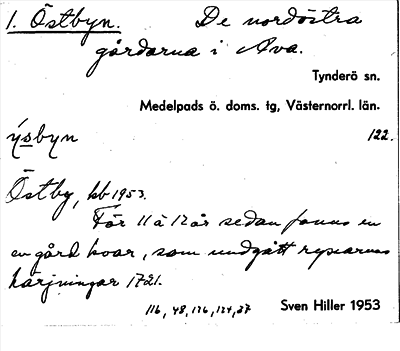 1. Östbyn. De nordöstra
gårdarna i Ava.
Tynderö sn.
Medelpads ö. doms. tg, Västernorrl. län.
ýsbyn 122.
Östby, kb 1953.
För 11 à 12 år sedan fanns en
en gård kvar, som undgått ryssarnas
härjningar 1721.
116, 48, 126, 124, 37 Sven Hiller 1953